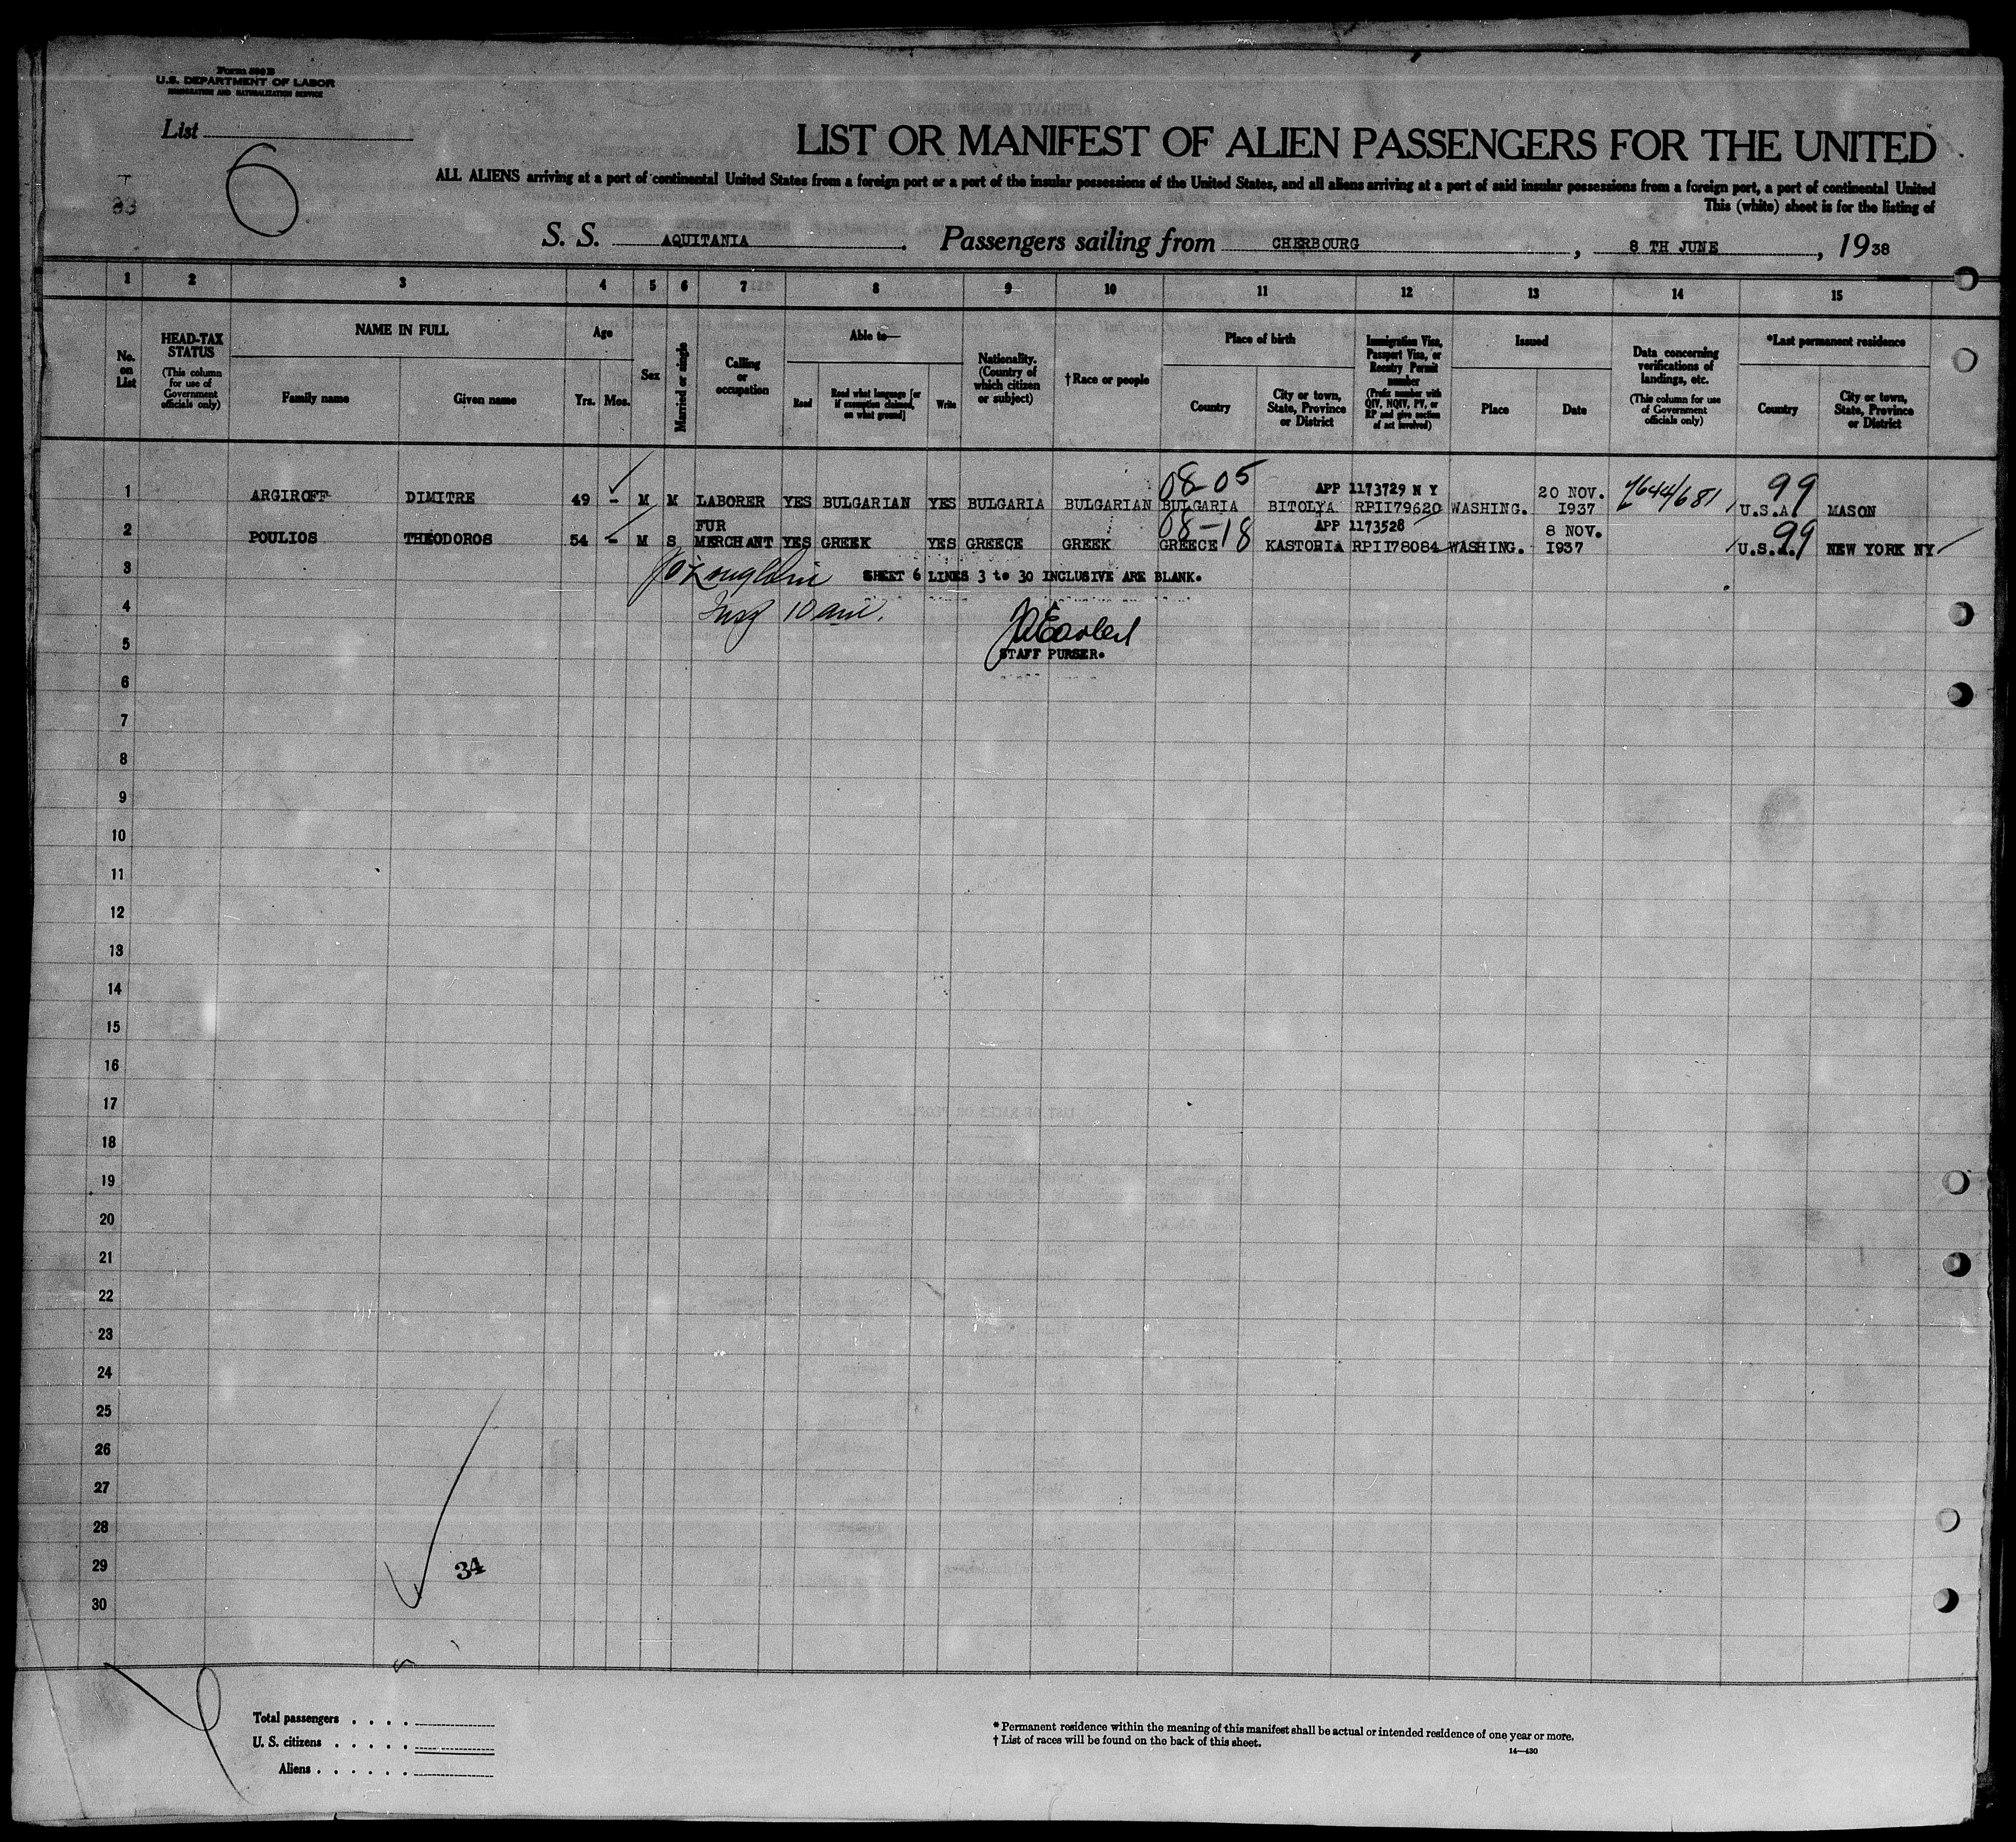 Form 500 B
U.S. DEPARTMENT OF LABOR
IMMIGRATION AND NATURALIZATION SERVICE
List
6
33
LIST OR MANIFEST OF ALIEN PASSENGERS FOR THE UNITED
ALL ALIENS arriving at a port of continental United States from a foreign port or a port of the insular possessions of the United States, and all aliens arriving at a port of said insular possessions from a foreign port, a port of continental United
This (white) sheet is for the listing of
S. S. AQUITANIA. Passengers sailing from CHERBOURG, 8 TH JUNE, 1938
1 2 3 4 5 6 7 8 9 10 11 12 13 14 15
No. on List
HEAD-TAX STATUS (This column for use of Government officials only)
NAME IN FULL
Family name Given name
Age
Yrs. Mos.
Sex
Married or single
Calling or occupation
Able to—
Read Read what language [or if exemption claimed, on what ground] Write
Nationality. (Country of which citizen or subject)
†Race or people
Place of birth
Country City or town, State, Province or District
Immigration Visa, Passport Visa, or Reentry Permit number (Prefix number with QIV, NQIV, PV, or RP and give section of act involved)
Issued
Place Date
Data concerning verifications of landings, etc. (This column for use of Government officials only)
*Last permanent residence
Country City or town, State, Province or District
08-05 APP 1173729 N Y 20 NOV. 7644/681 99
1 ARGIROFF DIMITRE 49 - M M LABORER YES BULGARIAN YES BULGARIA BULGARIAN BULGARIA BITOLYA RPII79620 WASHING. I937 U.S.A. MASON
FUR 08-18 APP 1173528 8 NOV. 99
2 POULIOS THEODOROS 54 - M S MERCHANT YES GREEK YES GREECE GREEK GREECE KASTORIA RPII78084 WASHING. I937 U.S.A. NEW YORK NY
3 SHEET 6 LINES 3 to 30 INCLUSIVE ARE BLANK.
4 Insp 10 am.
5 STAFF PURSER.
6
7
8
9
10
11
12
13
14
15
16
17
18
19
20
21
22
23
24
25
26
27
28
29 34
30
Total passengers . . . .
U. S. citizens . . . . .
Aliens . . . . . .
* Permanent residence within the meaning of this manifest shall be actual or intended residence of one year or more.
† List of races will be found on the back of this sheet.
14—430